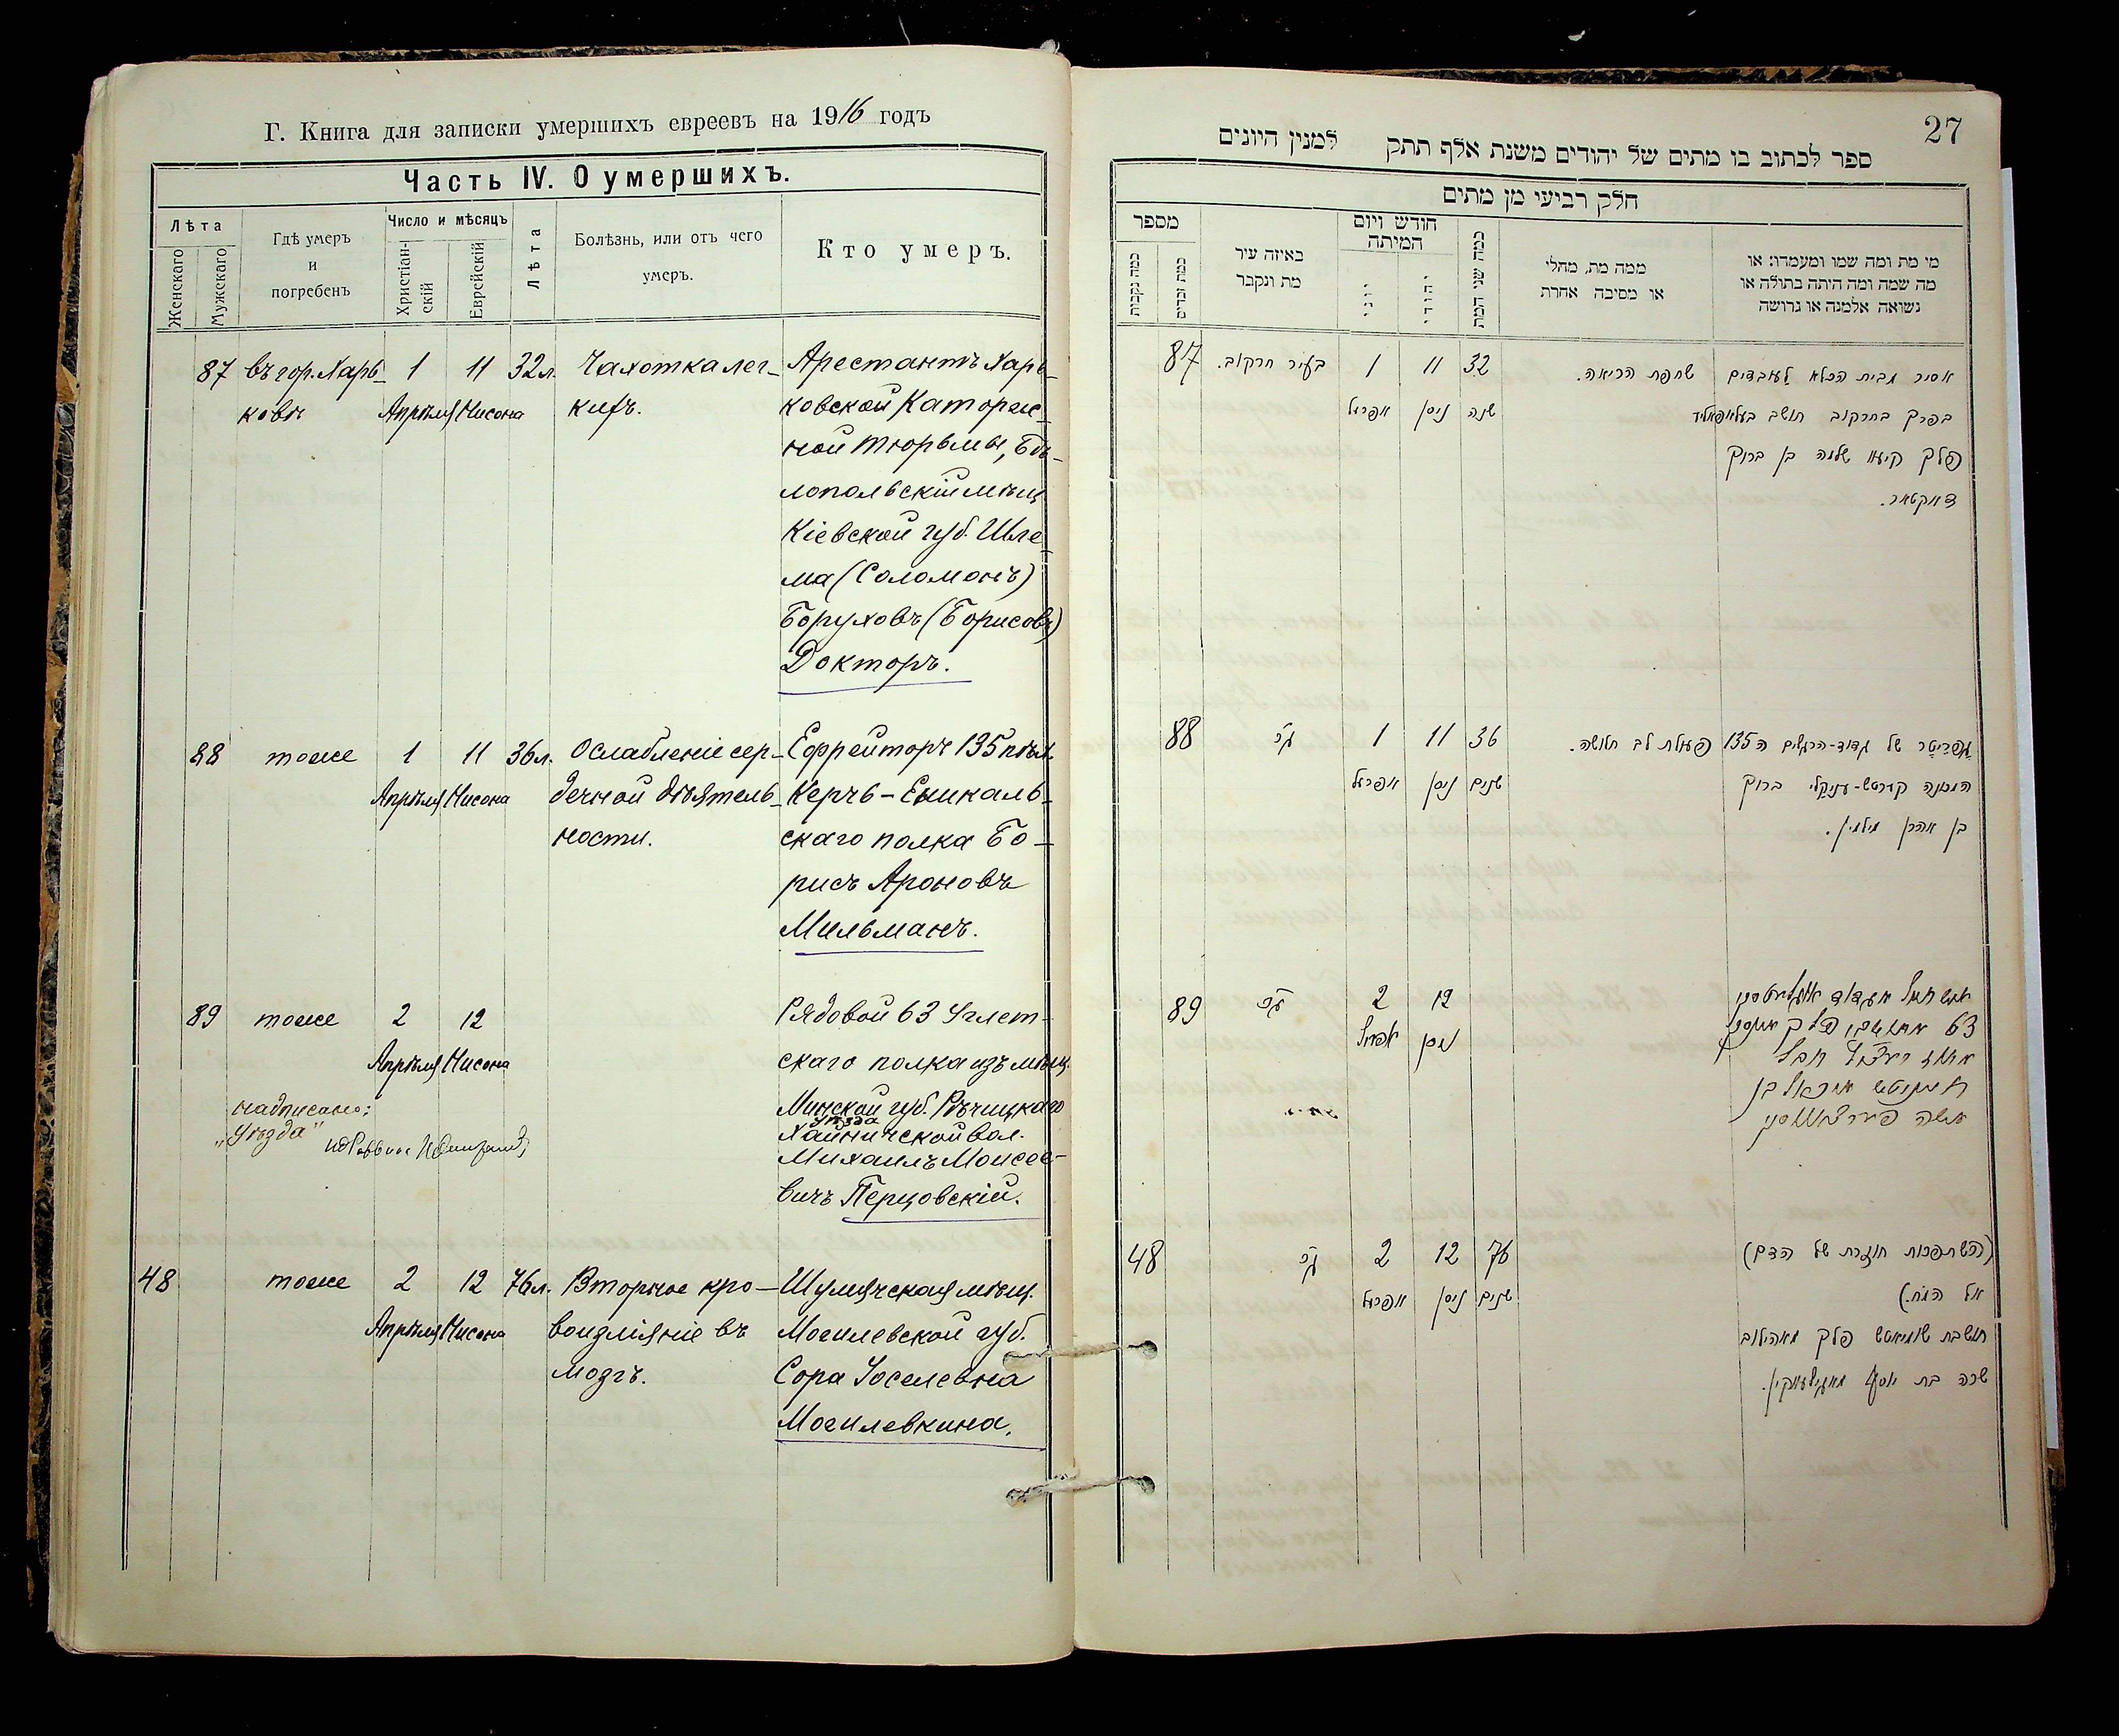 Г. Книга для записки умершихъ евреевъ на 1916 годъ
Часть IV. О умершихъ.
Лѣта
Женскаго
Мужескаго
Гдѣ умеръ
и
погребенъ
Число и мѣсяцъ
Христіан-
скій
Еврейскій
Лѣта
Болѣзнь, или отъ чего
умеръ.
Кто умеръ.
87 въ гор. Харь- 1 11 32 л. Чахотка лег- Арестантъ Харь-
ковѣ Апрѣля Нисона кихъ. ковской Каторж-
ной тюрьмы, Бѣ-
лопольскій мѣщ.
Кіевской губ. Шле-
ма (Соломонъ)
Боруховъ (Борисовъ)
Докторъ.
88 тоже 1 11 36 л. Ослабленіе сер- Ефрейторъ 135 пѣх.
Апрѣля Нисона дечной дѣятель- Керчь-Еникаль-
ности. скаго полка Бо-
рисъ Ароновъ
Мильманъ.
89 тоже 2 12 Рядовой 63 Углет-
Апрѣля Нисона скаго полка изъ мѣщ.
надписано: Минской губ. Рѣчицкаго
"Уѣзда" уѣзда
Хайничской вол.
Михаилъ Моисее-
вичъ Перцовскій.
48 тоже 2 12 76 л. Вторное кро- Шумячская мѣщ.
Апрѣля Нисона воизліяніе въ Могилевской губ.
мозгъ. Сора Іоселевна
Могилевкина.
27
ספר לכתוב בו מתים של יהודים משנת אלף תתק למנין היונים
חלק רביעי מן מתים
מספר
כמה נקבות
כמה זכרים
באיזה עיר
מת ונקבר
חודש ויום
המיתה
יוני
יהודי
כמה שני המת
ממה מת, מחלי
או מסיבה אחרת
מי מת ומה שמו ומעמדו: או
מה שמה ומה היתה בתולה או
נשואה אלמנה או גרושה
87 בעיר חרקוב. 1 11 32 שחפת הריאה. אסיר מבית הכלא לעובדים
אפריל ניסן שנה בפרך בחרקוב תושב
פלך קיעוו שלמה בן ברוך
דאקטאר.
88 1 11 36 פעולת לב חלושה. של גדוד-הרגלים ה135
אפריל ניסן שנים ברוך
בן אהרן מילמן.
89 2 12
אפריל ניסן 63
בן
משה
48 2 12 76 (השתפכות חוזרת של הדם)
אפריל ניסן שנים אל המח.)
תושבת שומיאטש פלך מאהילוב
שרה בת יוסף מאגילעווקין.